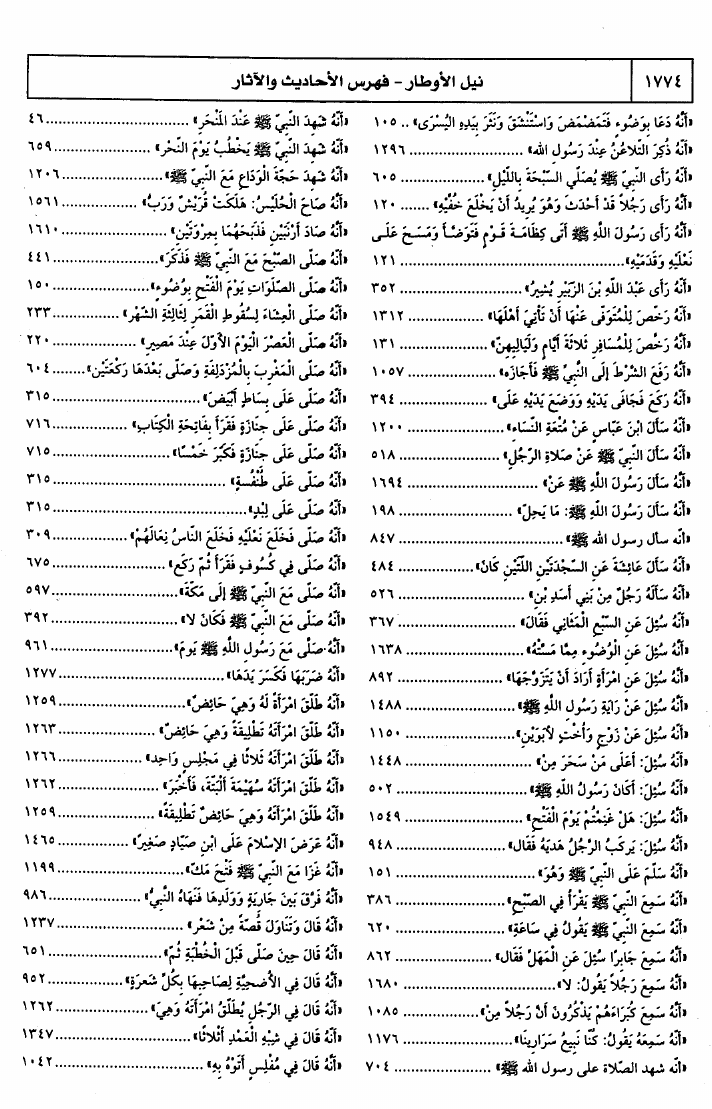 ١٧٧٤
نيل الأوطار - فهرس الأحاديث والآثار
«أَنَّهُ دَعَا بِوَضُوءٍ فَتَمَضْمَضَ وَاسْتَنْشَقَ وَنَثَرَ بِيَدِهِ الْيُسْرَى» .. ١٠٥
«أَنَّهُ ذُكِرَ التَّلاَعُنُ عِنْدَ رَسُولِ الله» ........................ ١٢٩٦
«أَنَّهُ رَأَى النَّبِيَّ ﷺ يُصَلِّي السُّبْحَةَ بِاللَّيْلِ» ........................ ٦٠٥
«أَنَّهُ رَأَى رَجُلاً قَدْ أَحْدَثَ وَهُوَ يُرِيدُ أَنْ يَخْلَعَ خُفَّيْهِ» ....... ١٢٠
«أَنَّهُ رَأَى رَسُولَ اللَّهِ ﷺ أَتَى كِظَامَةَ قَوْمٍ فَتَوَضَّأَ وَمَسَحَ عَلَى
نَعْلَيْهِ وَقَدَمَيْهِ» ........................ ١٢١
«أَنَّهُ رَأَى عَبْدَ اللَّهِ بْنَ الزُّبَيْرِ يُشِيرُ» ........................ ٣٥٢
«أَنَّهُ رَخَّصَ لِلْمُتَوَفَّى عَنْهَا أَنْ تَأْتِيَ أَهْلَهَا» ................ ١٣١٢
«أَنَّهُ رَخَّصَ لِلْمُسَافِرِ ثَلاَثَةَ أَيَّامٍ وَلَيَالِيهِنَّ» ................ ١٣١
«أَنَّهُ رَفَعَ الشَّرْطَ إِلَى النَّبِيِّ ﷺ فَأَجَازَهُ» ................ ١٠٥٧
«أَنَّهُ رَكَعَ فَجَافَى يَدَيْهِ وَوَضَعَ يَدَيْهِ عَلَى» ................ ٣٩٤
«أَنَّهُ سَأَلَ ابْنَ عَبَّاسٍ عَنْ مُتْعَةِ النِّسَاءِ» ................ ١٢٠٠
«أَنَّهُ سَأَلَ النَّبِيَّ ﷺ عَنْ صَلاَةِ الرَّجُلِ» ................ ٥١٨
«أَنَّهُ سَأَلَ رَسُولَ اللَّهِ ﷺ عَنْ» ........................ ١٦٩٤
«أَنَّهُ سَأَلَ رَسُولَ اللَّهِ ﷺ: مَا يَحِلُّ» ................ ١٩٨
«أنّه سأل رسول الله ﷺ» ........................ ٨٤٧
«أَنَّهُ سَأَلَ عَائِشَةَ عَنِ السَّجْدَتَيْنِ اللَّتَيْنِ كَانَ» ................ ٤٨٤
«أَنَّهُ سَأَلَهُ رَجُلٌ مِنْ بَنِي أَسَدِ بْنِ» ................ ٥٢٦
«أَنَّهُ سُئِلَ عَنِ السَّبْعِ الْمَثَانِي فَقَالَ» ................ ٣٦٧
«أَنَّهُ سُئِلَ عَنِ الْوُضُوءِ مِمَّا مَسَّتْهُ» ................ ١٦٣٨
«أَنَّهُ سُئِلَ عَنِ امْرَأَةٍ أَرَادَ أَنْ يَتَزَوَّجَهَا» ................ ٨٩٢
«أَنَّهُ سُئِلَ عَنْ رَايَةِ رَسُولِ اللَّهِ ﷺ» ................ ١٤٨٨
«أَنَّهُ سُئِلَ عَنْ زَوْجٍ وَأُخْتٍ لأَبَوَيْنِ» ................ ١١٥٠
«أَنَّهُ سُئِلَ: أَعَلَى مَنْ سَحَرَ مِنْ» ................ ١٤٤٨
«أَنَّهُ سُئِلَ: أَكَانَ رَسُولُ اللَّهِ ﷺ» ................ ٥٠٢
«أَنَّهُ سُئِلَ: هَلْ غَنِمْتُمْ يَوْمَ الْفَتْحِ» ................ ١٥٤٩
«أَنَّهُ سُئِلَ: يَركَبُ الرَّجُلُ هَدْيَهُ فَقَال» ................ ٩٤٨
«أَنَّهُ سَلَّمَ عَلَى النَّبِيِّ ﷺ وَهُوَ» ................ ١٥١
«أَنَّهُ سَمِعَ النَّبِيَّ ﷺ يَقْرَأُ فِي الصُّبْحِ» ................ ٣٨٦
«أَنَّهُ سَمِعَ النَّبِيَّ ﷺ يَقُولُ فِي سَاعَةٍ» ................ ٦٢٠
«أَنَّهُ سَمِعَ جَابِرًا سُئِلَ عَنِ الْمَهْلِ فَقَال» ................ ٨٦٢
«أَنَّهُ سَمِعَ رَجُلاً يَقُولُ: لا» ................ ١٦٨٠
«أَنَّهُ سَمِعَ كُبَرَاءَهُمْ يَذْكُرُونَ أَنَّ رَجُلاً مِنْ» ................ ١٠٨٥
«أَنَّهُ سَمِعَهُ يَقُولُ: كُنَّا نَبِيعُ سَرَارِينَا» ................ ١١٧٦
«أنّه شهد الصّلاة على رسول الله ﷺ» ................ ٧٠٤
«أَنَّهُ شَهِدَ النَّبِيَّ ﷺ عَنْدَ الْمَنْحَرِ» ................ ٤٦
«أَنَّهُ شَهِدَ النَّبِيَّ ﷺ يَخْطُبُ يَوْمَ النَّحْرِ» ................ ٦٥٩
«أَنَّهُ شَهِدَ حَجَّةَ الْوَدَاعِ مَعَ النَّبِيِّ ﷺ» ................ ١٢٠٦
«أَنَّهُ صَاحَ الْحُلَيْسُ: هَلَكَتْ قُرَيْشٌ وَرَبُّ» ................ ١٥٦١
«أَنَّهُ صَادَ أَرْنَبَيْنِ فَذَبَحَهُمَا بِمِرْوَتَيْنِ» ................ ١٦١٠
«أَنَّهُ صَلَّى الصُّبْحَ مَعَ النَّبِيِّ ﷺ فَذَكَرَ» ................ ٤٤١
«أَنَّهُ صَلَّى الصَّلَوَاتِ يَوْمَ الْفَتْحِ بِوُضُوءٍ» ................ ١٥٠
«أَنَّهُ صَلَّى الْعِشَاءَ لِسُقُوطِ الْقَمَرِ لِثَالِثَةِ الشَّهْرِ» ............ ٢٣٣
«أَنَّهُ صَلَّى الْعَصْرَ الْيَوْمَ الأَوَّلَ عِنْدَ مَصِيرِ» ................ ٢٢٠
«أَنَّهُ صَلَّى الْمَغْرِبَ بِالْمُزْدَلِفَةِ وَصَلَّى بَعْدَهَا رَكْعَتَيْنِ» ........ ٦٠٤
«أَنَّهُ صَلَّى عَلَى بِسَاطٍ أَبْيَضَ» ................ ٣١٥
«أَنَّهُ صَلَّى عَلَى جَنَازَةٍ فَقَرَأَ بِفَاتِحَةِ الْكِتَابِ» ............ ٧١٦
«أَنَّهُ صَلَّى عَلَى جَنَازَةٍ فَكَبَّرَ خَمْسًا» ................ ٧١٥
«أَنَّهُ صَلَّى عَلَى طُنْفُسَةٍ» ................ ٣١٥
«أَنَّهُ صَلَّى عَلَى لِبْدٍ» ................ ٣١٥
«أَنَّهُ صَلَّى فَخَلَعَ نَعْلَيْهِ فَخَلَعَ النَّاسُ نِعَالَهُمْ» ............ ٣٠٩
«أَنَّهُ صَلَّى فِي كُسُوفٍ فَقَرَأَ ثُمَّ رَكَعَ» ................ ٦٧٥
«أَنَّهُ صَلَّى مَعَ النَّبِيِّ ﷺ إِلَى مَكَّةَ» ................ ٥٩٧
«أَنَّهُ صَلَّى مَعَ النَّبِيِّ ﷺ فَكَانَ لا» ................ ٣٩٢
«أَنَّهُ صَلَّى مَعَ رَسُولِ اللَّهِ ﷺ يَوْمَ» ................ ٩٦١
«أَنَّهُ ضَرَبَهَا فَكَسَرَ يَدَهَا» ................ ١٢٧٧
«أَنَّهُ طَلَّقَ امْرَأَةً لَهُ وَهِيَ حَائِضٌ» ................ ١٢٥٩
«أَنَّهُ طَلَّقَ امْرَأَتَهُ تَطْلِيقَةً وَهِيَ حَائِضٌ» ................ ١٢٦٣
«أَنَّهُ طَلَّقَ امْرَأَتَهُ ثَلاَثًا فِي مَجْلِسٍ وَاحِدٍ» ................ ١٢٦٦
«أَنَّهُ طَلَّقَ امْرَأَتَهُ سُهَيْمَةَ أَلْبَتَّةَ، فَأَخْبَرَ» ................ ١٢٦٢
«أَنَّهُ طَلَّقَ امْرَأَتَهُ وَهِيَ حَائِضٌ تَطْلِيقَةً» ................ ١٢٥٩
«أَنَّهُ عَرَضَ الإِسْلاَمَ عَلَى ابْنِ صَيَّادٍ صَغِيرًا» ............ ١٤٦٥
«أَنَّهُ غَزَا مَعَ النَّبِيِّ ﷺ فَتْحَ مَكَّ» ................ ١١٩٩
«أَنَّهُ فَرَّقَ بَيْنَ جَارِيَةٍ وَوَلَدِهَا فَنَهَاهُ النَّبِيُّ» ............ ٩٨٦
«أَنَّهُ قَالَ وَتَنَاوَلَ قُصَّةً مِنْ شَعْرٍ» ................ ١٢٣٧
«أَنَّهُ قَالَ حِينَ صَلَّى قَبْلَ الْخُطْبَةِ ثُمَّ» ................ ٦٥١
«أَنَّهُ قَالَ فِي الأُضْحِيَّةِ لِصَاحِبِهَا بِكُلِّ شَعَرَةٍ» ............ ٩٥٢
«أَنَّهُ قَالَ فِي الرَّجُلِ يُطَلِّقُ امْرَأَتَهُ وَهِيَ» ................ ١٢٦٢
«أَنَّهُ قَالَ فِي شِبْهِ الْعَمْدِ أَثْلاَثًا» ................ ١٣٤٧
«أَنَّهُ قَالَ فِي مُفْلِسٍ أَتَوْهُ بِهِ» ................ ١٠٤٢